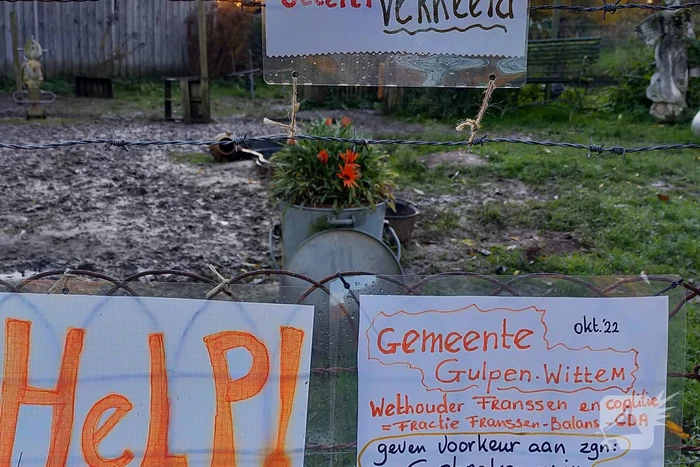 verkeerd
HeLP!
okt.'22
Gemeente
Gulpen-Wittem
Wethouder Franssen en coalitie
= Fractie Franssen-Balans-CDA
geven voorkeur aan zgn: